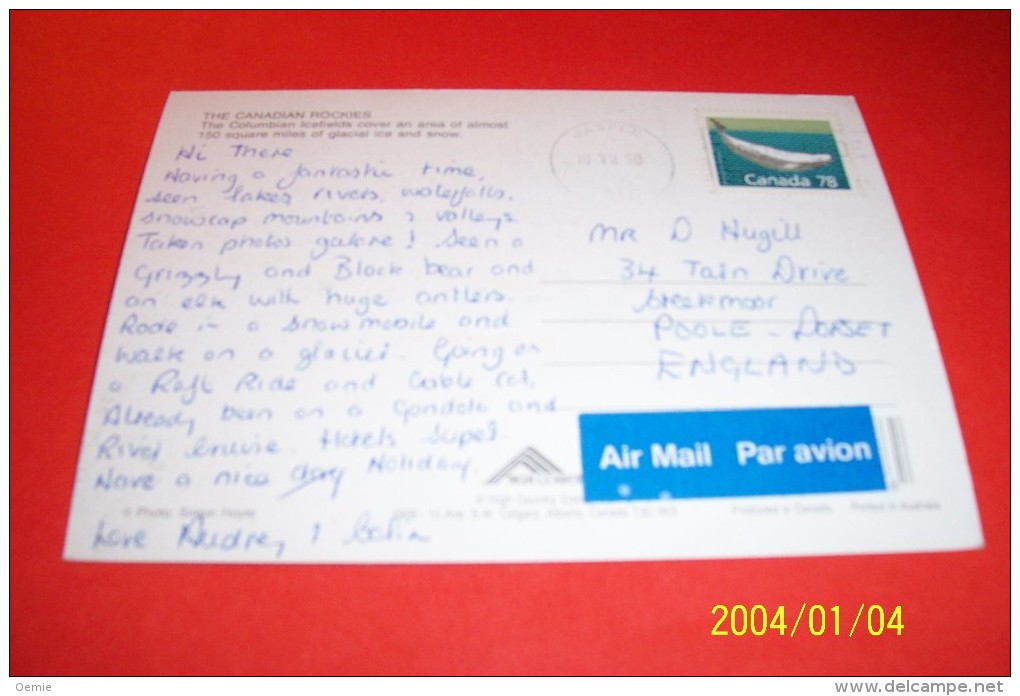 THE CANADIAN ROCKIES
The Columbian Icefields cover an area of almost
150 square miles of glacial ice and snow.
Hi There
Having a fantastic time,
seen lakes rivers, waterfalls,
snowcap mountains & valleys.
Taken photos galore! Seen a
Grizzly and Black bear and
an elk with huge antlers.
Rode in a snow mobile and
walk on a glacier. Going on
a Raft Ride and Cable Car,
Already been on a Gondola and
River Cruise. Hotels super.
Have a nice day Holiday.
Love Audrey & Colin
Canada 78
MR D Hugill
34 Tain Drive
POOLE - DORSET
ENGLAND
Air Mail Par avion
© Photo: Simon Hoyle
© High Country
Calgary, Alberta, Canada
Produced in Canada
Printed in Australia
2004/01/04
Oemie
www.delcampe.net